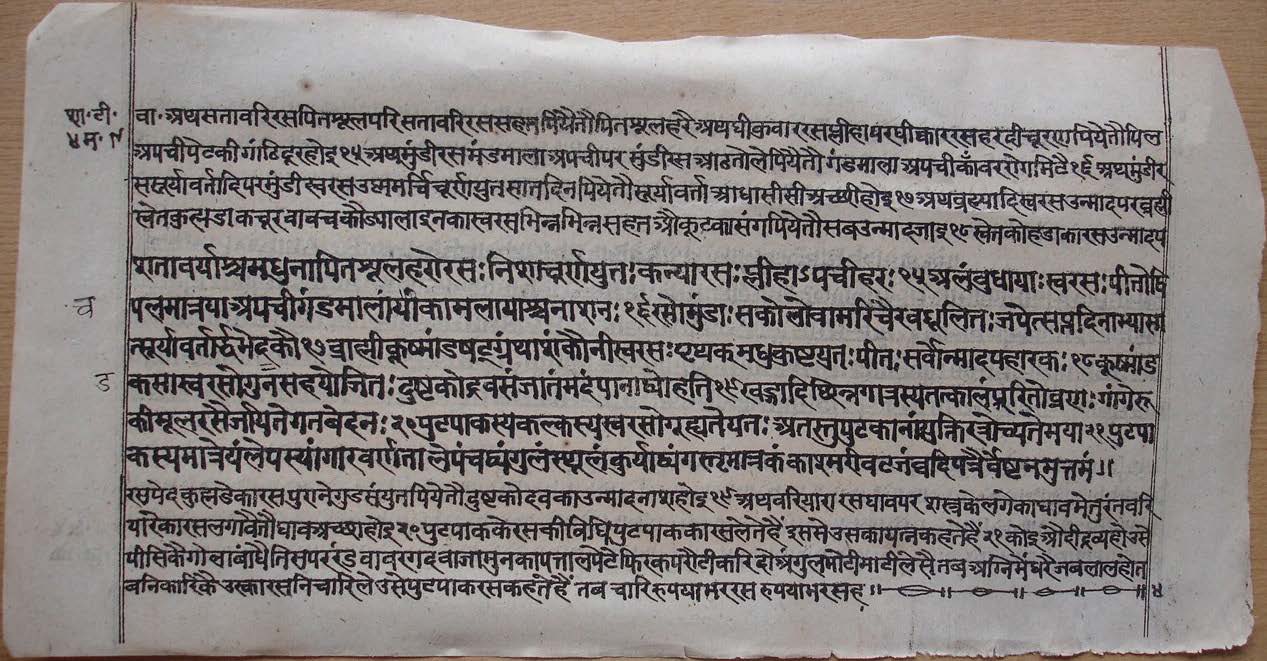 शा॰टी॰
४ म॰ १
वा॰ अथसतावरिरसपित्तशूलपरिसतावरिरससहतपियैतौपित्तशूलहरै अथघीकवाररसप्लीहापरघीकाररसहरदीचूरणपियेतौपिल
अपचीपेटकीगांठिदूरहोइ १५ अथमुंडीरसगंडमाला अपचीपर मुंडीरस आठतोलेपियैतौ गंडमाला अपचीकाँवररोगमिटै १६ अथमुंडीर
ससूर्यावर्तादिपरमुंडीस्वरसउष्णमर्चिचूर्णयुतसातदिनपियेतौसूर्यावर्ता आधासीसी अच्छीहोइ १७ अथब्रह्म्यादिस्वरसउन्मादपरब्रह्मी
स्वेतकुह्मडाकचूरवावचकौड्यालाइनकास्वरसभिन्नभिन्नसहत औकूटकासंगपियेतौसबउन्मादजाइ १८ स्वेतकोहडाकारसउन्मादप
शतावर्याश्चमधुनापित्तशूलहरोरसः निशाचूर्णयुतः कन्यारसः प्लीहाऽपचीहरः १५ अलंबुषायाः स्वरसः पीतोद्वि
पलमात्रया अपचीगंडमालायांकामलायाश्चनाशनः १६ रसोमुंडाः सकोलोवामरिचैरवधूलितः जयेत्सप्तदिनाभ्यासा
च
त्सूर्यावर्तार्द्धभेदकौ १७ ब्राह्मीकूष्मांडषड्ग्रंथाशंकौनीस्वरसः पृथकमधुकुष्टयुतः पीतः सर्वोन्मादपहारकः १८ कूष्मांड
ड
कमास्वरसोगुनसहयोजितः दुष्टकोद्रवसंजातंमदंपानाद्यपोहति १९ खड्गादिछिन्नगात्रस्यतत्कालंपूरितोव्रणः गांगेरु
कीमूलरसैर्जायतेगतवेदनः २० पुटपाकस्यकल्कस्यस्वरसोगृह्यतेयतः अतस्तुपुटकानांयुक्तिरत्रोच्यतेमया २१ पुटपा
कस्यमात्रेयंलेपस्यांगारवर्णता लेपंचद्यंगुलंस्थूलंकुर्याद्यं गरुमात्रकं काश्मरीवटजंब्वादिपत्रैर्वेष्टनमुत्तमं॥
रसपेदकुह्मडेकारसपुरानेगुडसंयुतपियेतौदुष्टकोदवकाउन्मादनाशहोइ १९ अथवरियारा रसघावपर शस्त्रकेलगेकाघावमेतुरंतवरि
यारेकारसलगावैतौघावअच्छाहोइ २० पुटपाककेरसकीविधिपुटपाककारसलेतेहैं इसमेउसकायत्नकहतेहैं २१ कोइ औदीद्रव्यहोउसे
पीसिकैगोलाबांधैतिसपररंडवावरगदवाजामुनकापत्तालपेटैफिरकपरौटीकरिदोअंगुलमोटीमाटीलेसैतब अग्निमेंधरैजबलालहोत
बनिकारिकै उस्कारसनिचारिलेउसेपुटपाकरसकहतेहैं तब चारिरुपयाभररस रुपयाभरसह॥ ४